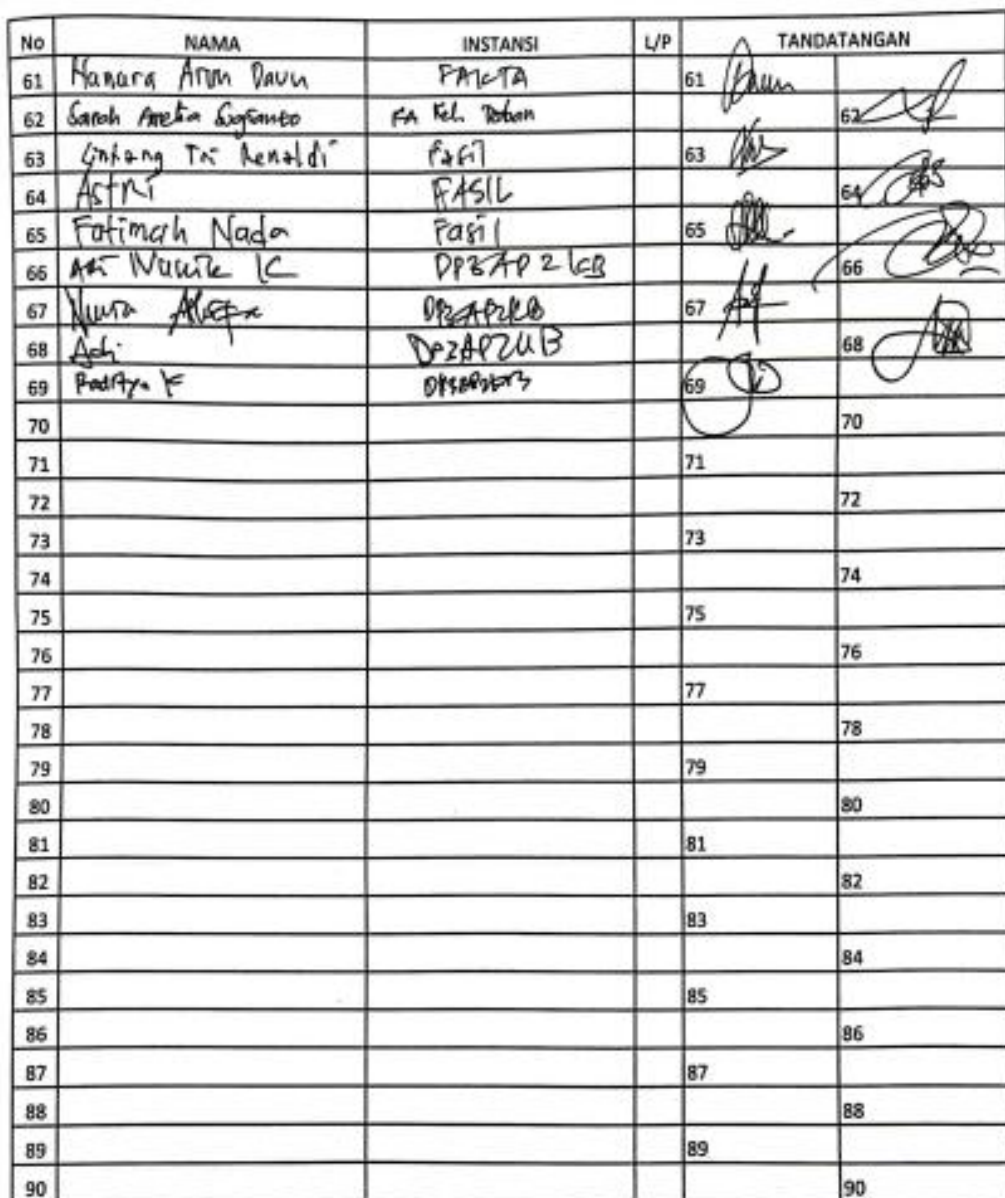 No NAMA INSTANSI L/P TANDATANGAN
61 Hanara Arum Daun FAKTA 61
62 Sarah Amelia Sugianto FA Kel. 62
63 Lintang Tri Renaldi Fasil 63
64 Astri FASIL 64
65 Fatimah Nada Fasil 65
66 Ari Nunik K DP3AP2KB 66
67 DP3AP2KB 67
68 Adi DP3AP2KB 68
69 Raditya K DP3AP2KB 69
70 70
71 71
72 72
73 73
74 74
75 75
76 76
77 77
78 78
79 79
80 80
81 81
82 82
83 83
84 84
85 85
86 86
87 87
88 88
89 89
90 90